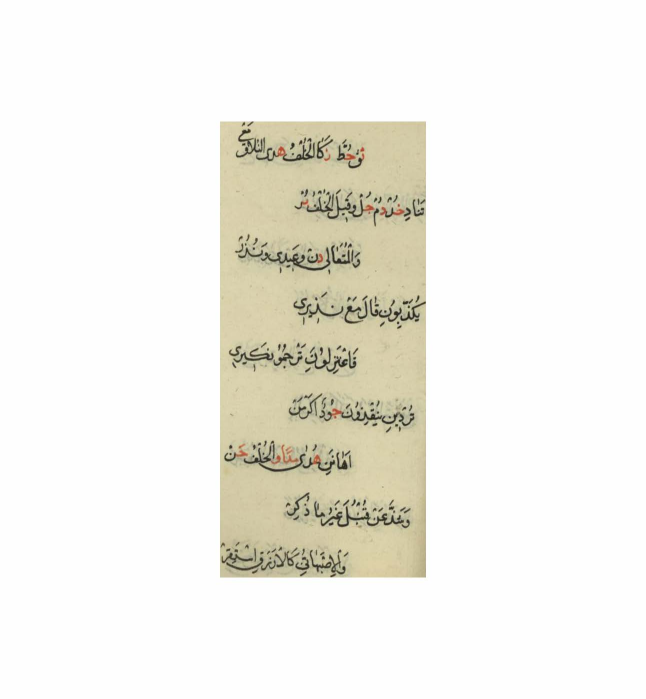 ثِقْ حُطْ زَكَا الْخُلْفُ هُدَى التَّلَاقِ مَعْ
تَنَادِ خُذْ دُمْ جُلْ وَقِيلَ الْخُلْفُ بَرْ
وَالْمُتَعَالِ دِنْ وَعِيدِى وَنُذُرْ
يُكَذِّبُونِ قَالَ مَعْ نَذِيرِى
فَاعْتَزِلُونِ تَرْجُمُو نَكِيرِى
تُرْدِينِ يُنْقِذُونِ جُودُ أَكْرَمَنْ
أَهَانَنِ هُدًى مَدًا وَالْخُلْفُ حَنْ
وَشَذَّ عَنْ قُنْبُلَ غَيْرُ مَا ذُكِرْ
وَالْاِصْبَهَانِي كَالْازْرَقِ اسْتَقَرْ